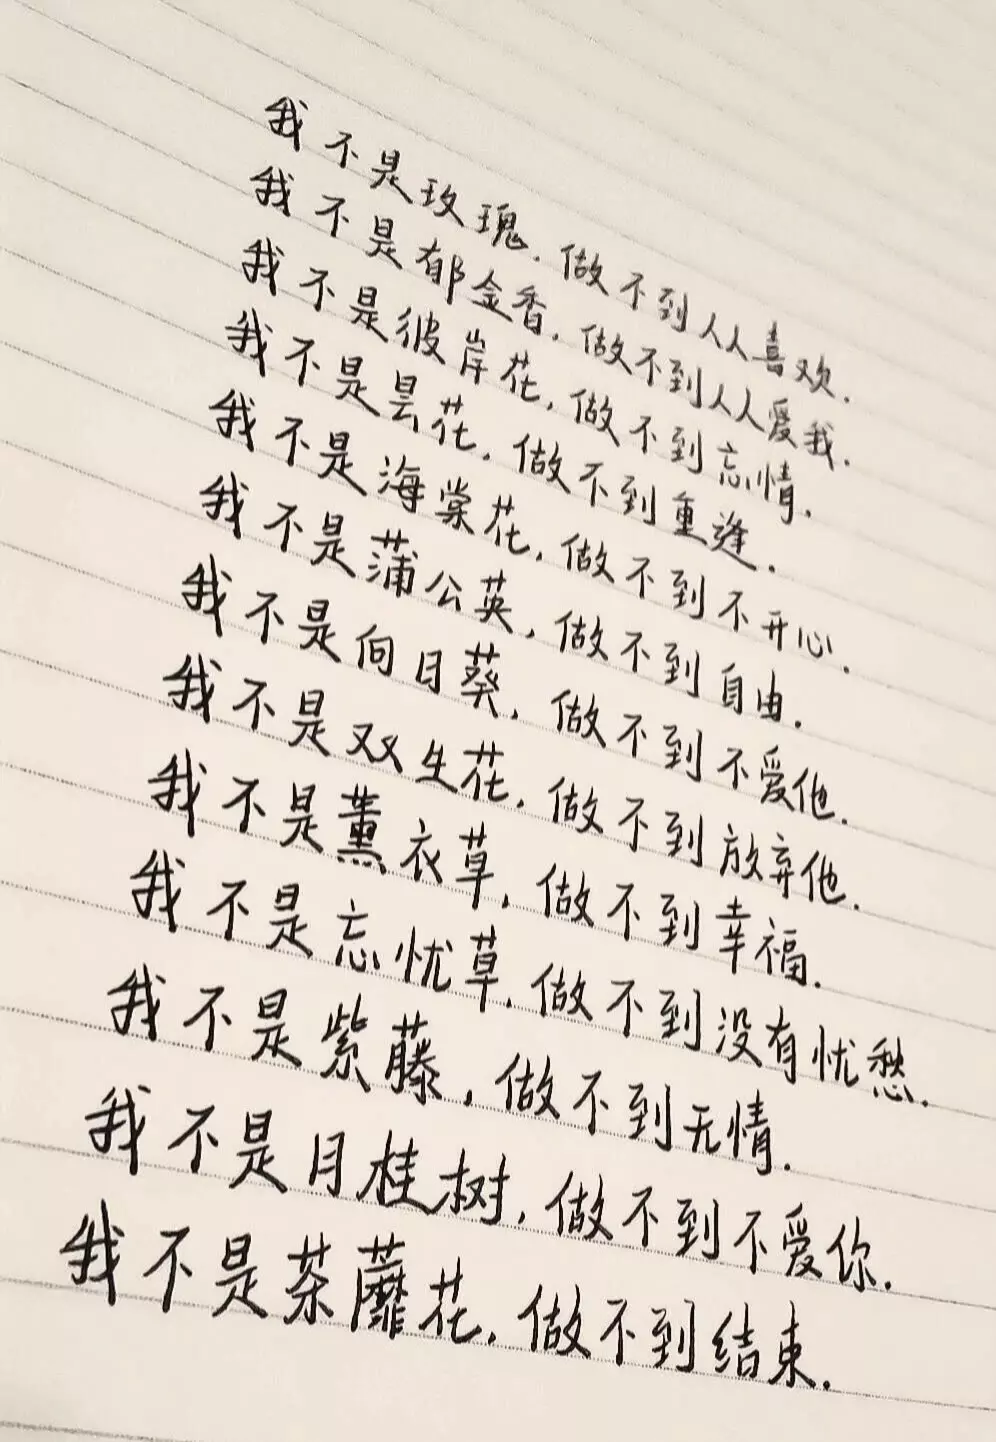 我不是玫瑰.做不到人人喜欢.
我不是郁金香.做不到人人爱我.
我不是彼岸花,做不到忘情.
我不是昙花,做不到重逢.
我不是海棠花,做不到不开心.
我不是蒲公英,做不到自由.
我不是向日葵,做不到不爱他.
我不是双生花,做不到放弃他.
我不是薰衣草,做不到幸福.
我不是忘忧草,做不到没有忧愁.
我不是紫藤,做不到无情.
我不是月桂树,做不到不爱你.
我不是荼蘼花,做不到结束.